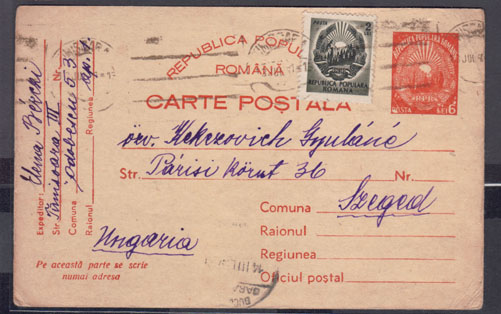 REPUBLICA POPULARĂ
ROMÂNĂ
CARTE POSTALA
REPUBLICA POPULARA
ROMANA
POSTA LEI 6
özv. Kekezovich Gyuláné
Str. Párisi Körut 36 Nr.
Comuna Szeged
Raionul
Regiunea
Oficiul poștal
Ungaria
Expeditor: Elena
Str. Timisoara III
Comuna
Raionul Regiunea ap. 1.
Pe această parte se scrie
numai adresa
GARA